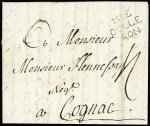 ISLE
D'OLLE
RON
A Monsieur
Monsieur Hennesson
Negt
a Cognac